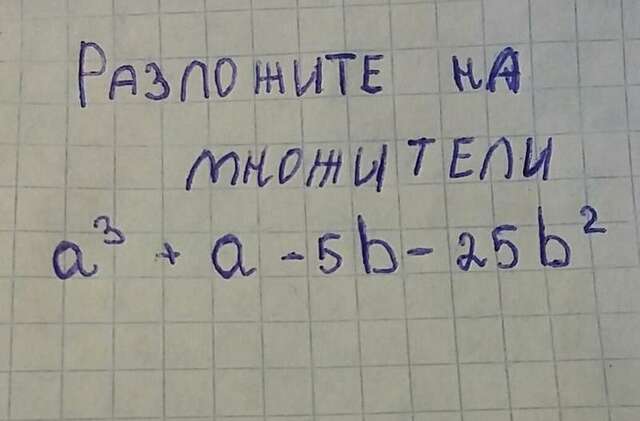 РАЗЛОЖИТЕ НА
МНОЖИТЕЛИ
a³ + a - 5b - 25b²